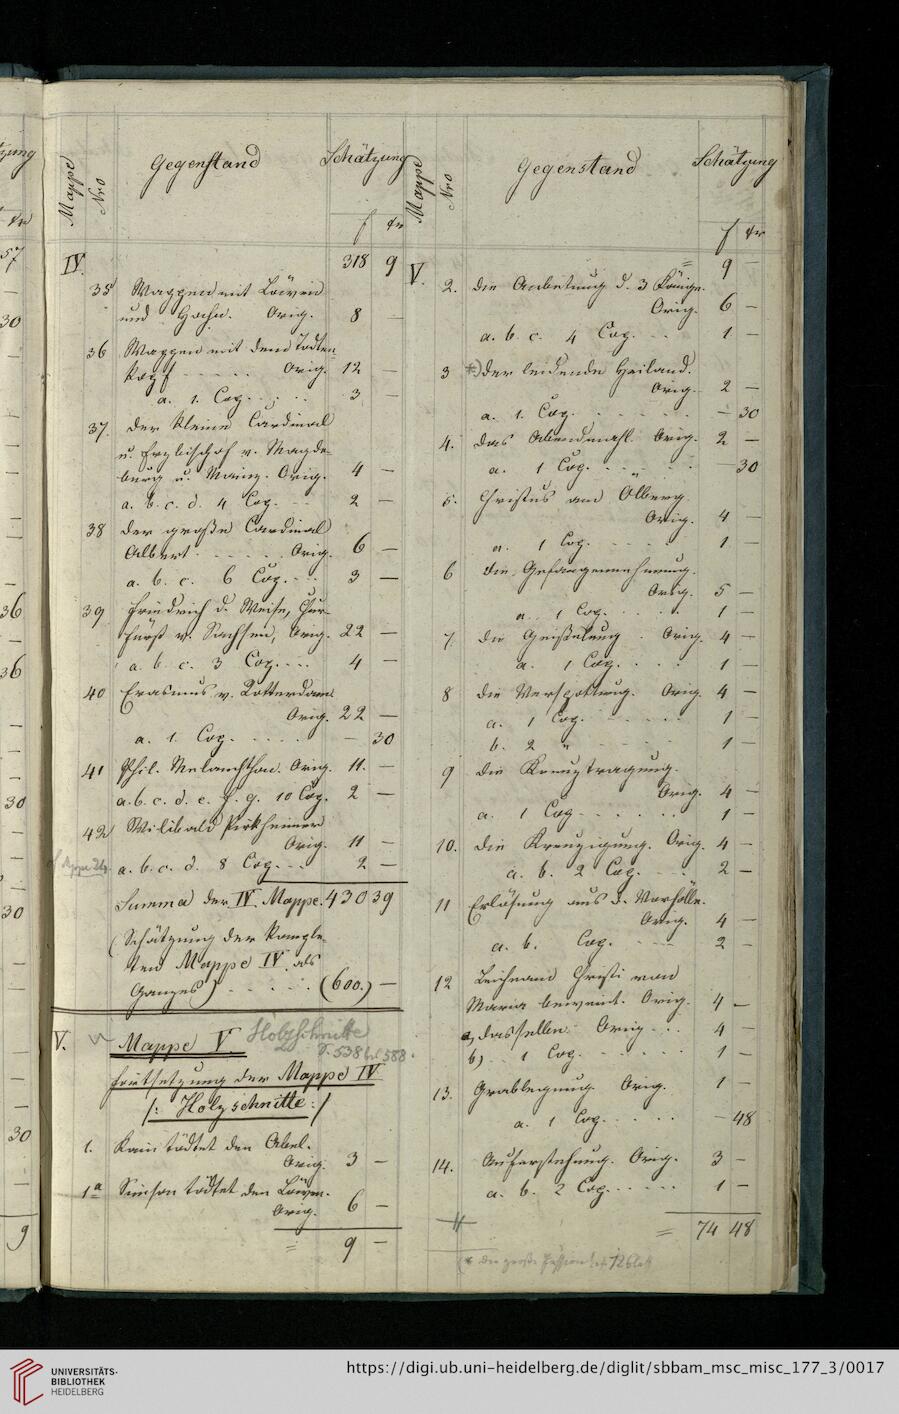 zung
xr
57
30
36
36
30
30
30
9
Mappe
Nro
Gegenstand
Schätzung
f xr
IV.
318 9
35 Wappen mit Löwen
und Hahn. Orig. 8 —
36 Wappen mit dem Todten-
kopf - - - - - Orig. 12 —
a. 1. Cop. - - - 3 —
37. Der kleine Cardinal
u. Erzbischof v. Magde-
burg u. Mainz. Orig. 4 —
a. b. c. d. 4 Cop. - - 2 —
38 Der große Cardinal
Albert - - - - - Orig. 6 —
a. b. c. 6 Cop. - - 3 —
39 Friedrich d. Weise, Chur-
fürst v. Sachsen, Orig. 22 —
a. b. c. 3 Cop. - - - 4 —
40 Erasmus v. Rotterdam
Orig. 22 —
a. 1. Cop. - - - - — 30
41 Phil. Melanchthon. Orig. 11. —
a. b. c. d. e. f. g. 10 Cop. 2 —
42 Wilibald Pirkheimer
Orig. 11 —
a. b. c. d. 8 Cop. - - 2 —
Summa der IV. Mappe. 430 39
(Schätzung der komple-
ten Mappe IV. als
Ganzes) - - - - - (600.) —
V. Mappe V. Holzschnitte
538 bis 588.
Fortsetzung der Mappe IV
/: Holzschnitte :/
1. Kain tödtet den Abel.
Orig. 3 —
1a Simson tödtet den Löwen.
Orig. 6 —
= 9 —
Mappe
Nro
Gegenstand
Schätzung
f xr
V. = 9 —
2. Die Anbetung d. 3 Könige.
Orig. 6 —
a. b. c. 4 Cop. - - 1 —
3 *) Der leidende Heiland.
Orig. 2 —
a. 1. Cop. - - - - - — 30
4. Das Abendmahl Orig. 2 —
a. 1 Cop. - - „ - - 30
5. Christus am Ölberg.
Orig. 4 —
a. 1 Cop. - - - - 1 —
6 Die Gefangennehmung.
Orig. 5 —
a. 1 Cop. - - - - 1 —
7. Die Geißelung - Orig. 4 —
a. 1 Cop. - - - 1 —
8 Die Verspottung. Orig. 4 —
a. 1 Cop. - - - - - 1 —
b. 2 „ - - - - 1 —
9 Die Kreuztragung.
Orig. 4 —
a. 1 Cop - - - - - - 1 —
10. Die Kreuzigung. Orig. 4 —
a. b. 2 Cop. - - - 2 —
11 Erlösung aus d. Vorhölle.
Orig. 4 —
a. b. Cop. - - - 2 —
12 Leichnam Christi von
Maria beweint. Orig. 4 —
a) dasselbe. Orig - - - 4 —
b) - 1 Cop. - - - - - 1 —
13. Grablegung Orig. 1 —
a. 1 Cop. - - - - - — 48
14. Auferstehung. Orig. 3 —
a. b. 2 Cop. - - - - - 1 —
= 74 48
(* die große Passion hat 12 Blatt
UNIVERSITÄTS-
BIBLIOTHEK
HEIDELBERG
https://digi.ub.uni-heidelberg.de/diglit/sbbam_msc_misc_177_3/0017